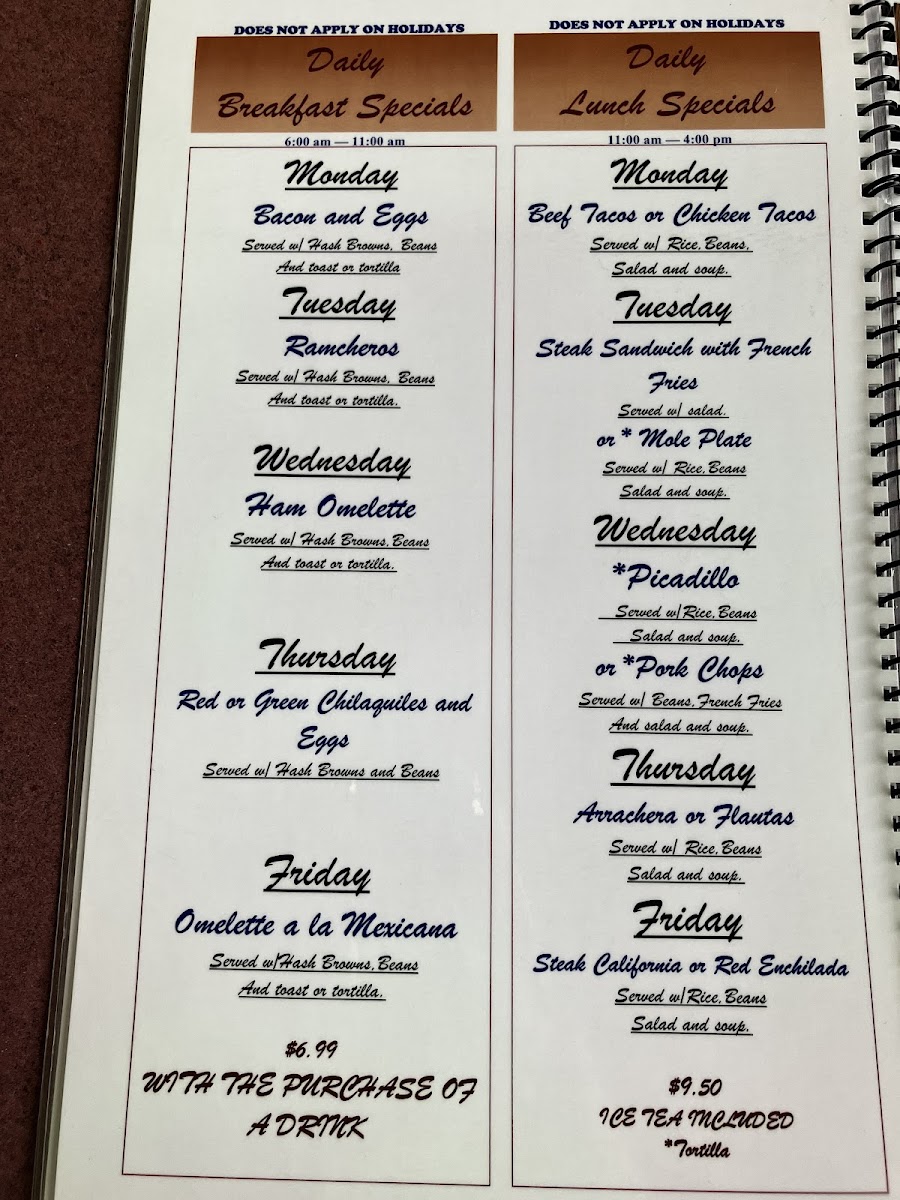 DOES NOT APPLY ON HOLIDAYS
Daily
Breakfast Specials
6:00 am — 11:00 am
Monday
Bacon and Eggs
Served w/ Hash Browns, Beans
And toast or tortilla
Tuesday
Ramcheros
Served w/ Hash Browns, Beans
And toast or tortilla.
Wednesday
Ham Omelette
Served w/ Hash Browns,Beans
And toast or tortilla.
Thursday
Red or Green Chilaquiles and
Eggs
Served w/ Hash Browns and Beans
Friday
Omelette a la Mexicana
Served w/Hash Browns,Beans
And toast or tortilla,
$6.99
WITH THE PURCHASE OF
A DRINK
DOES NOT APPLY ON HOLIDAYS
Daily
Lunch Specials
11:00 am — 4:00 pm
Monday
Beef Tacos or Chicken Tacos
Served w/ Rice,Beans,
Salad and soup.
Tuesday
Steak Sandwich with French
Fries
Served w/ salad.
or * Mole Plate
Served w/ Rice,Beans
Salad and soup.
Wednesday
*Picadillo
Served w/Rice,Beans
Salad and soup.
or *Pork Chops
Served w/ Beans,French Fries
And salad and soup.
Thursday
Arrachera or Flautas
Served w/ Rice,Beans
Salad and soup.
Friday
Steak California or Red Enchilada
Served w/Rice,Beans
Salad and soup.
$9.50
ICE TEA INCLUDED
*Tortilla